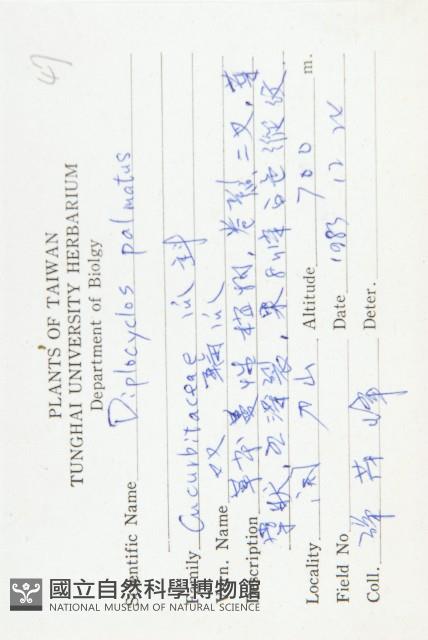 47
PLANTS OF TAIWAN
TUNGHAI UNIVERSITY HERBARIUM
Department of Biolgy
Scientific Name Diplocyclos palmatus
Family Cucurbitaceae 瓜科
Ven. Name 双輪瓜
Description 草本蔓性植物,卷鬚二叉,葉
掌狀,五深裂,果8條白色縱紋.
Locality 刀山 Altitude 700 m.
Field No. Date 1983 12 24
Coll. Deter.
國立自然科學博物館
NATIONAL MUSEUM OF NATURAL SCIENCE